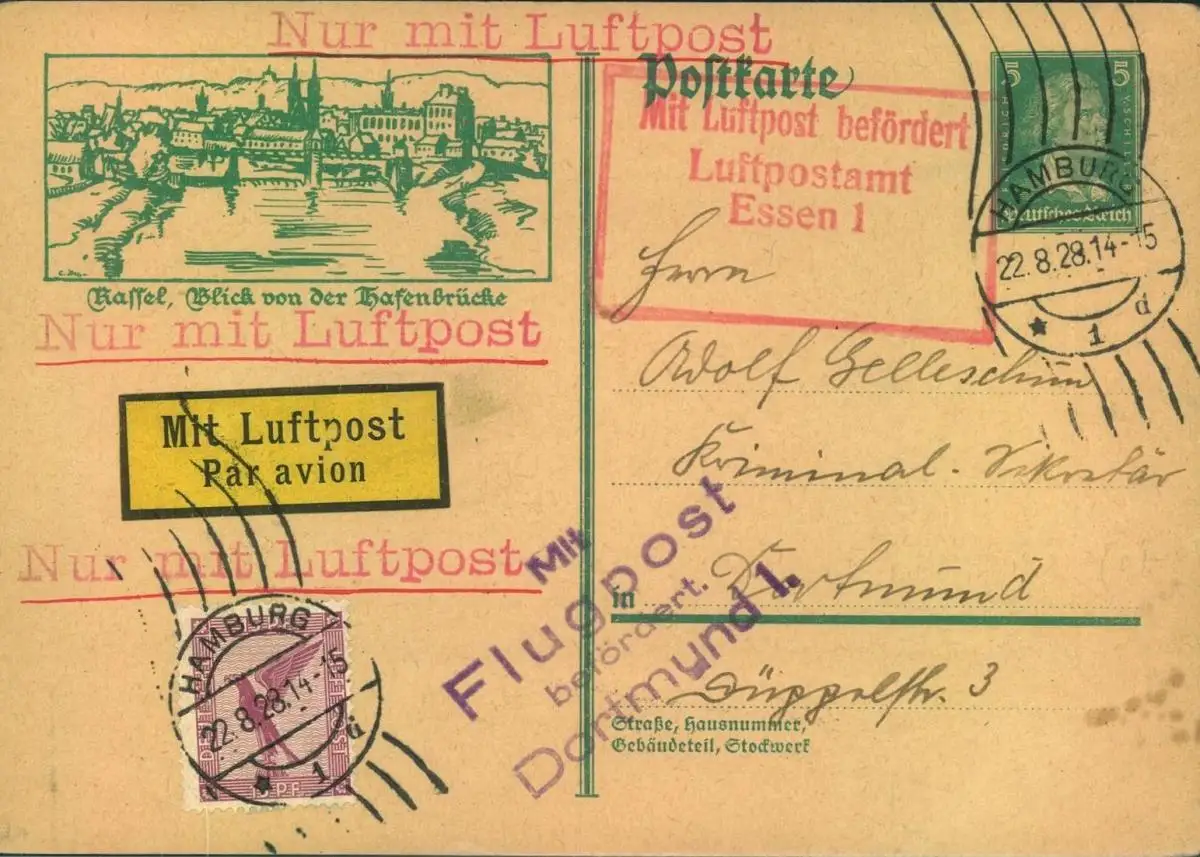 Nur mit Luftpost
Postkarte
5 5
Deutsches Reich
Mit Luftpost befördert
Luftpostamt
Essen 1
HAMBURG
22.8.28.14-15
* 1 d
Kassel, Blick von der Hafenbrücke
Nur mit Luftpost
Mit Luftpost
Par avion
Nur mit Luftpost
HAMBURG
22.8.28.14-15
* 1 d
Herrn
Adolf
Kriminal-Sekretär
in Dortmund
Düppelstr. 3
Straße, Hausnummer,
Gebäudeteil, Stockwerk
Mit
Flugpost
befördert.
Dortmund 1.